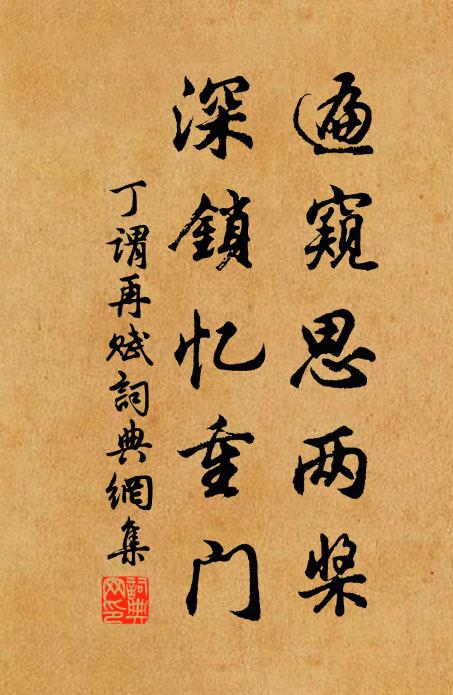 遍窥思两桨
深鎖忆重门
丁谓再赋詞典網集
詞典网印